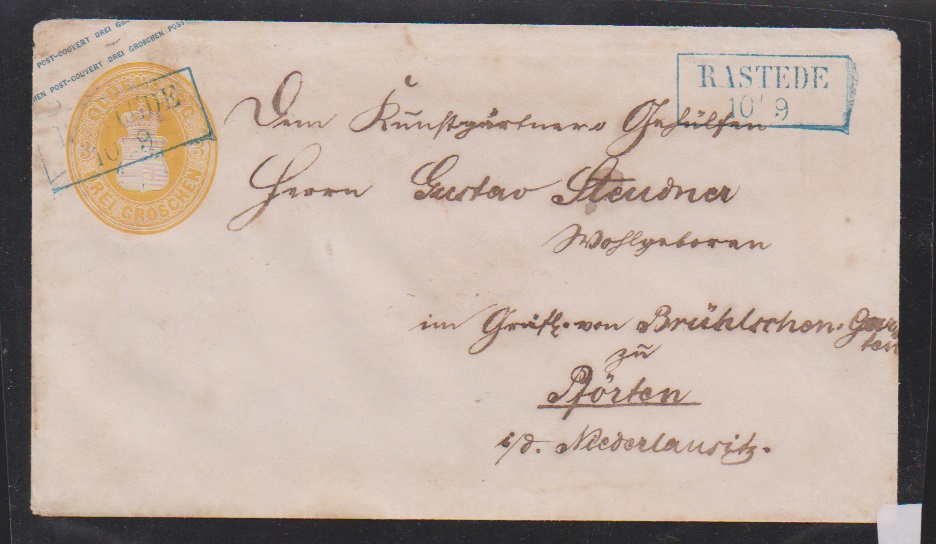 POST-COUVERT DREI GR
HEN POST-COUVERT DREI GROSCHEN POST
OLDENBURG
DREI GROSCHEN
RASTEDE
10 9
RASTEDE
10 9
Dem Kunstgärtners Gehülfen
Herrn Gustav Steudner
Wohlgeboren
im Gräfl. von Brühlschen Gar
ten
zu
Pförten
i/d. Niederlausitz.